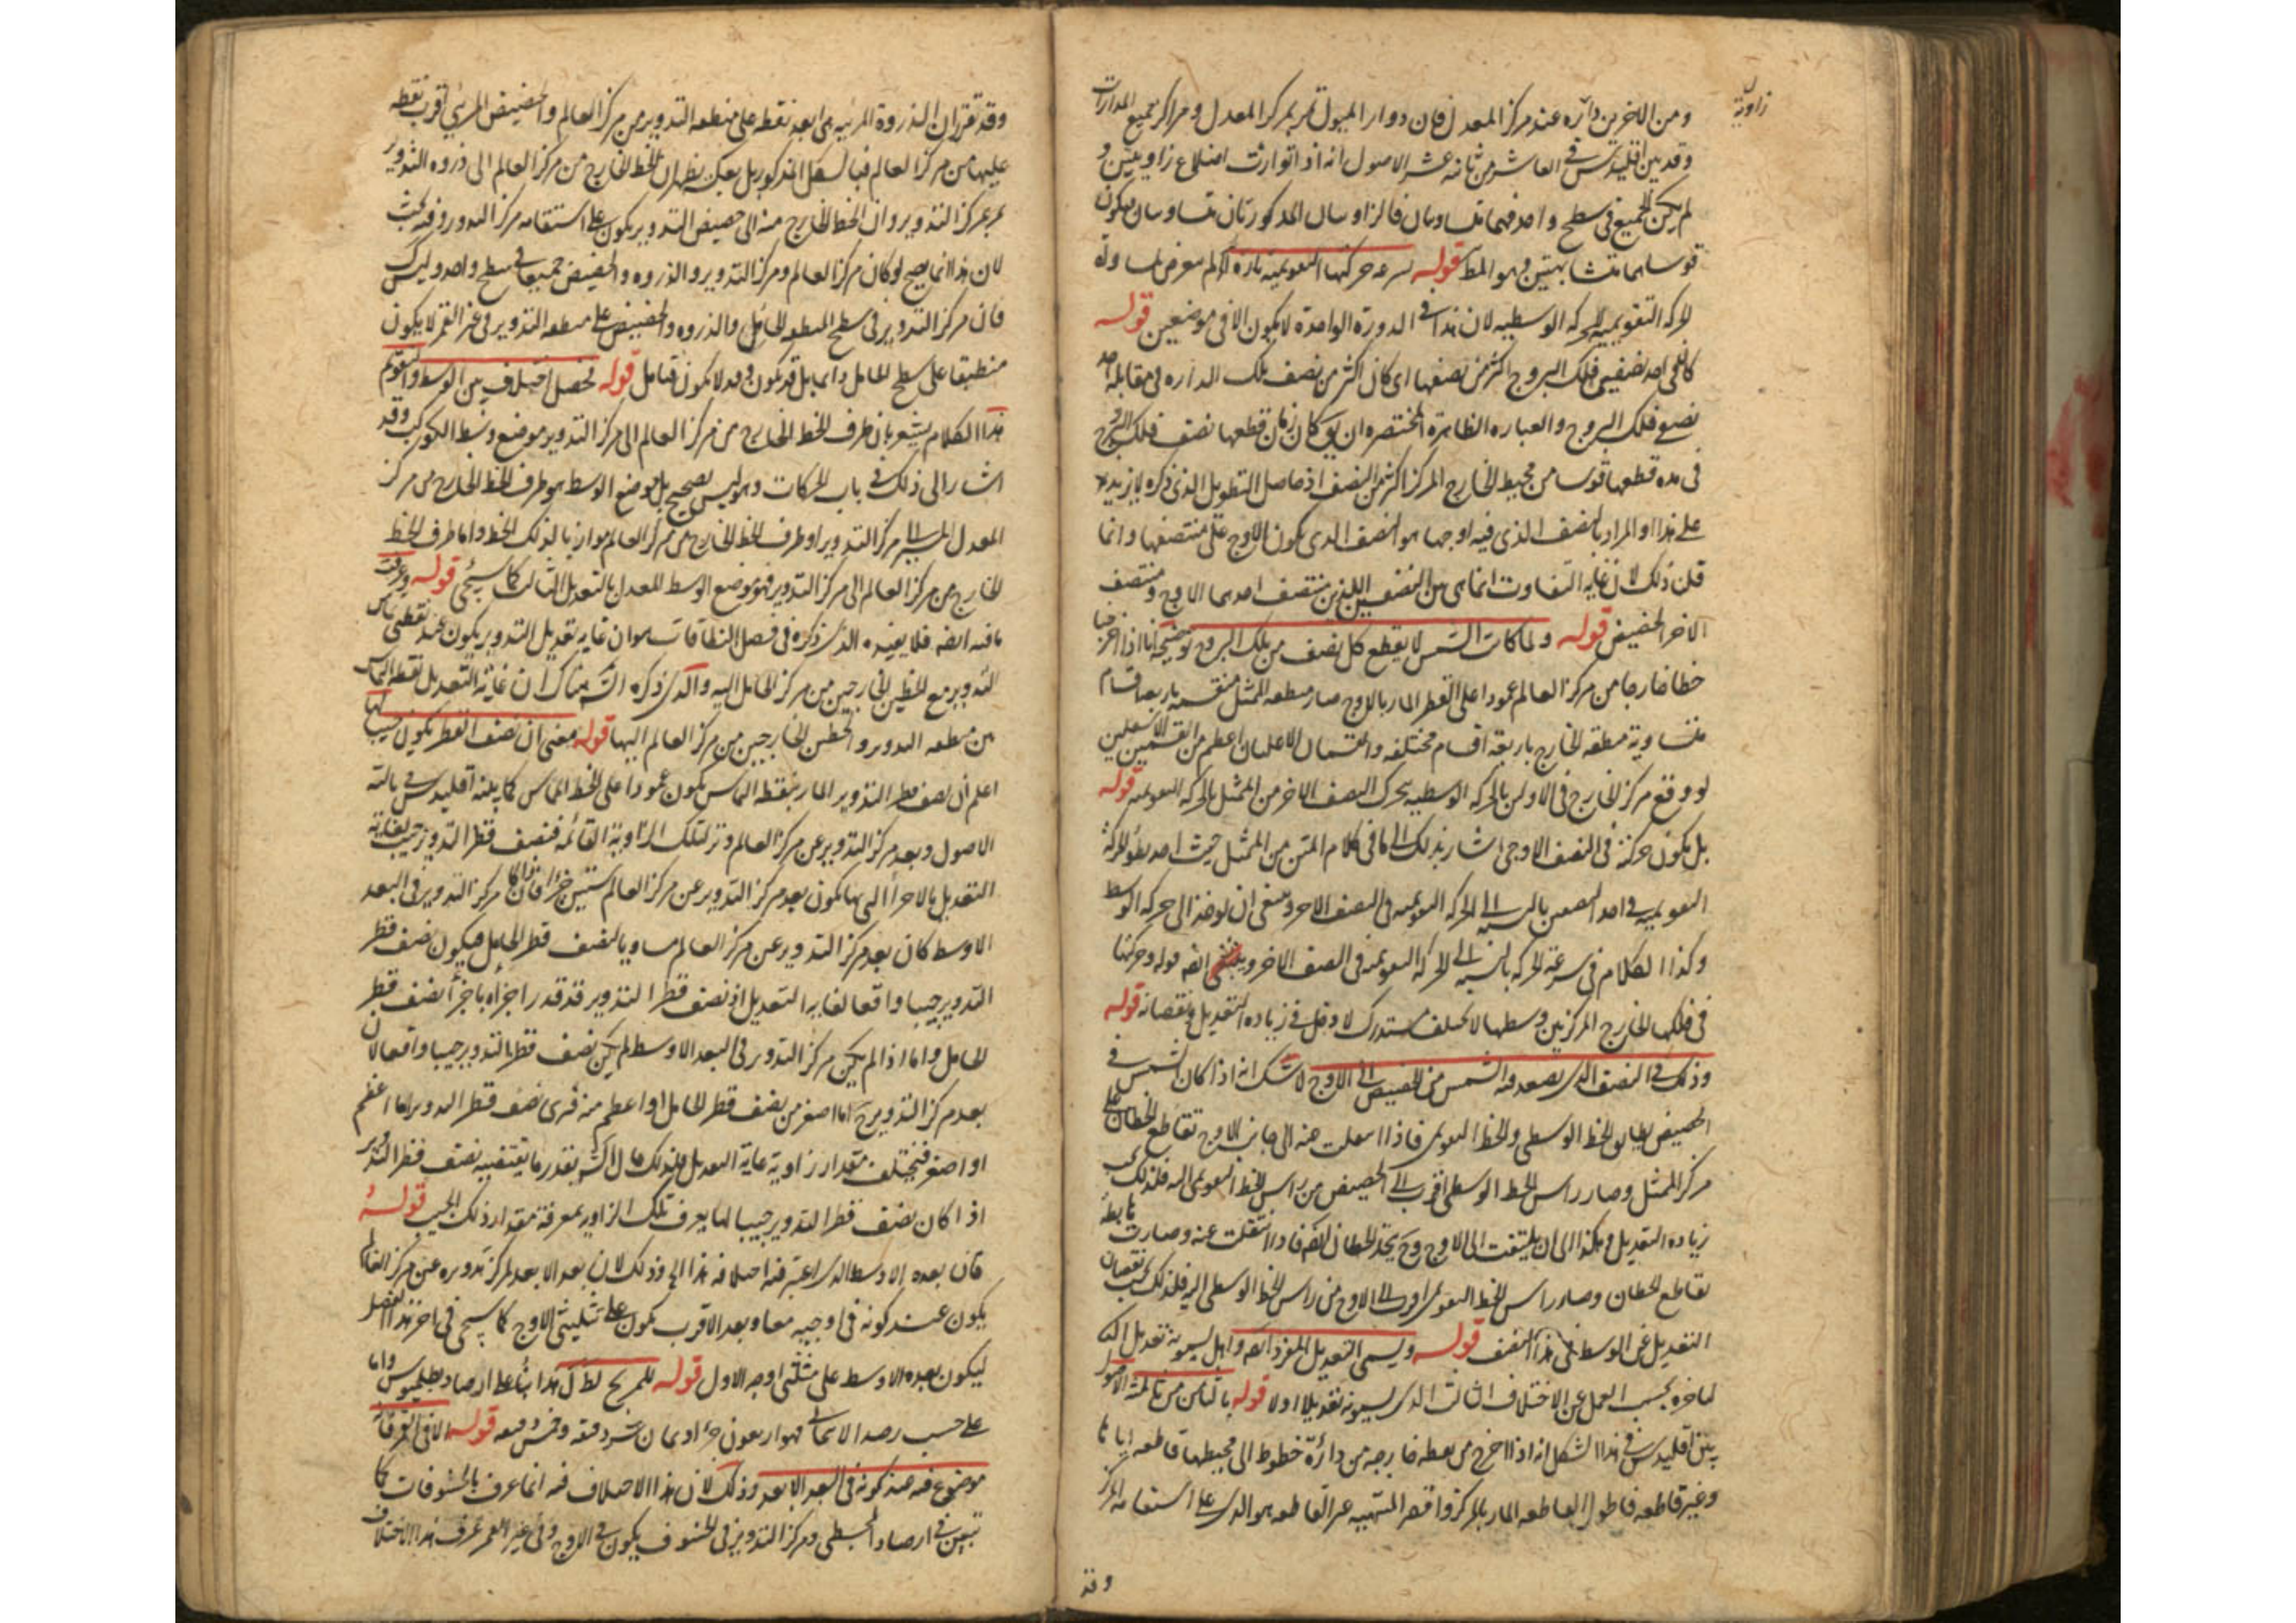 زاوية
ومن الاخرين دائره عند مركز المعدل فان دوائر الميول تمر بمركز المعدل ومراكز جميع المدارات
وقد بين اقليدس في العاشر من ثانية عشر الاصول انه اذا توازت اضلاع زاويتين و
لم يكن الجميع في سطح واحد فهما متساويتان فالزاويتان المذكورتان متساويتان فيكون
قوساهما متشابهتين وهو المط قوله سرعه حركتها التقويمية تارة لم يعرض لمساواة
الحركه التقويمية للحركه الوسطيه لان هذا في الدورة الواحدة لا يكون الا في موضعين قوله
كان في احد نصفي فلك البروج اكثر من نصفها اى كان اكثر من نصف تلك الدائره في مقابلة احد
نصفي فلك البروج والعباره الظاهرة المختصره ان يق كان زمان قطعها نصف فلك البروج
في مده قطعها قوسا من محيط الخارج المركز اكثر من النصف اذ حاصل التطويل الذى ذكره لا يزيد
على هذا والمراد بالنصف الذى فيه اوجها هو النصف الذى يكون الاوج على منتصفها وانما
قلن ذلك لان غايه التفاوت انما هى بين النصفين اللذين منتصف احدهما الاوج ومنتصف
الاخر الحضيض قوله ولما كانت الشمس لا يقطع كل نصف من فلك البروج توضيحه انا اذا اخرجنا
خطا خارجا من مركز العالم عمودا على القطر المار بالاوج صار منطقه الممثل منقسمه باربعة اقسام
متساوية منطقه الخارج باربعة اقسام مختلفه والقسمان الاعليان اعظم من القسمين الاسفلين
لوقوع مركز الخارج في الاولين بالحركه الوسطيه يتحرك النصف الاخر من الممثل بالحركه التقويميه قوله
بل يكون حركته في النصف الاوجى اشار بذلك الى ما في كلام المتن من الممثل حيث احد بطؤ الحركة
التقويميه في احد النصفين بالنسبه الى الحركه التقويميه في النصف الاخر وينبغى ان يوخذ الى حركه الوسط
وكذا الكلام في سرعة الحركه بالنسبه الى الحركه التقويميه في النصف الاخر وينبغي ايضا قوله وحركتها
في فلكها الخارج المركز بين وسطها لا يختلف مستدرك لا دخل في زياده التعديل ونقصانه قوله
وذلك في النصف الذى يصعد فيه الشمس من الحضيض الى الاوج لا شك انه اذا كان الشمس في
الحضيض يطابق الخط الوسطى والخط التقويمى فاذا انتقلت منه الى جانب الاوج تقاطع الخطان على
مركز الممثل وصار راس الخط الوسطى اقرب الى الحضيض من راس الخط التقويمى اليه فلذلك يجب
زياده التعديل وهكذا الى ان يلتفت الى الاوج وح يتحد الخطان ايضا فاذا انتقلت عنه وصارت هابطة
تقاطع الخطان وصار راس الخط التقويمى اقرب الى الاوج من راس الخط الوسطى اليه فلذلك يجب نقصان
التعديل عن الوسط في هذا النصف قوله ويسمى التعديل المفرد ايضا واهل يسمونه تعديل
لتاخره بحسب العمل عن الاختلاف الثالث الذى يسمونه تعديلا اولا قوله بالثامن من ثالثة الاصول
بين اقليدس في هذا الشكل انه اذا خرج من نقطه خارجه من دائرة خطوط الى محيطها قاطعه اياها
وغير قاطعه فاطول القاطعه المار بالمركز واقصر المنتهيه غير القاطعه هو الذى على استقامة المركز
وقد
وقد تقرر ان الذروة المرئيه هى ابعد نقطه على منطقه التدوير من مركز العالم والحضيض المرئي اقرب نقطه
عليها من مركز العالم فبالشكل المذكور بل بعكسه يظهر ان الخط الخارج من مركز العالم الى ذروه التدوير
يمر بمركز التدوير وان الخط الخارج منه الى حضيض التدوير يكون على استقامه مركز التدوير وفيه بحث
لان هذا انما يصح لو كان مركز العالم ومركز التدوير والذروه والحضيض جميعا في سطح واحد وليس كذلك
فان مركز التدوير في سطح المنطقه الحامل والذروه والحضيض على منطقه التدوير في غير القمر لا يكون
منطبقا على سطح الحامل والمايل قد يكون وقد لا يكون فتامل قوله فحصل اختلاف بين الوسط والتقويم
هذا الكلام يشعر بان طرف الخط الخارج من مركز العالم الى مركز التدوير موضع وسط الكوكب وقد
اشار الى ذلك في باب الحركات وهو ليس بصحيح بل موضع الوسط هو طرف الخط الخارج من مركز
المعدل المسير الى مركز التدوير او طرف الخط الخارج من مركز العالم موازيا لذلك الخط واما طرف الخط
الخارج من مركز العالم الى مركز التدوير فهو موضع الوسط المعدل بالتعديل الثالث كما سيجئ قوله وعرفت
ما فيه ايضه فلا يعيده الذى ذكره في فصل النطاقات هو ان غايه تعديل التدوير يكون عند نقطتى تماس
التدوير مع الخطين الخارجين من مركز الحامل اليه والذى ذكره الش هناك ان غاية التعديل نقطه التماس
بين منطقه التدوير والخطين الخارجين من مركز العالم اليها قوله معنى ان نصف القطر يكون جيبا لها
اعلم ان نصف قطر التدوير المار بنقطه التماس يكون عمودا على الخط المماس كما بينه اقليدس في ثالثة
الاصول وبعد مركز التدوير عن مركز العالم وتر لتلك الزاوية القائمه فنصف قطر التدوير جيب لغاية
التعديل بالاجزاء التى بها يكون بعد مركز التدوير عن مركز العالم ستين جزءا فان كان مركز التدوير في البعد
الاوسط كان بعد مركز التدوير عن مركز العالم مساويا لنصف قطر الحامل فيكون نصف قطر
التدوير جيبا واقعا لغايه التعديل اذ نصف قطر التدوير قد قدر اجزاءه باجزاء نصف قطر
الحامل واما اذا لم يكن مركز التدوير في البعد الاوسط لم يكن نصف قطر التدوير جيبا واقعا لان
بعد مركز التدوير ح اما اصغر من نصف قطر الحامل او اعظم منه فيرى نصف قطر التدوير اما اعظم
او اصغر فيختلف مقدار زاوية غاية التعديل فلذلك قال الش بقدر ما يقتضيه نصف قطر التدوير
اذا كان نصف قطر التدوير جيبا لها يعرف تلك الزاوية بمعرفة مقدار ذلك الجيب قوله
فان بعده الاوسط الذى اعتبر فيه اختلافه هذا الخ وذلك لان بعد الابعد لمركز تدويره عن مركز العالم
يكون عند كونه في اوجيه معا وبعد الاقرب يكون على تثليثى الاوج كما سيجئ في اخر هذا الفصل
ليكون بعده الاوسط على مثلثى اوجه الاول قوله للمريخ لط ل هذا بناء على ارصاد بطلميوس واما
على حسب رصد الايلخانى فهو اربعون جزءا وثمان عشر دقيقه وخمس دقيقه قوله الا في القمر فان
موضوع فيه عند كونه في البعد الابعد وذلك لان هذا الاختلاف فيه انما عرف بالخسوفات كما
تبين في ارصاد المجسطى ومركز التدوير في الخسوف يكون في الاوج وفي غير القمر عرف هذا الاختلاف